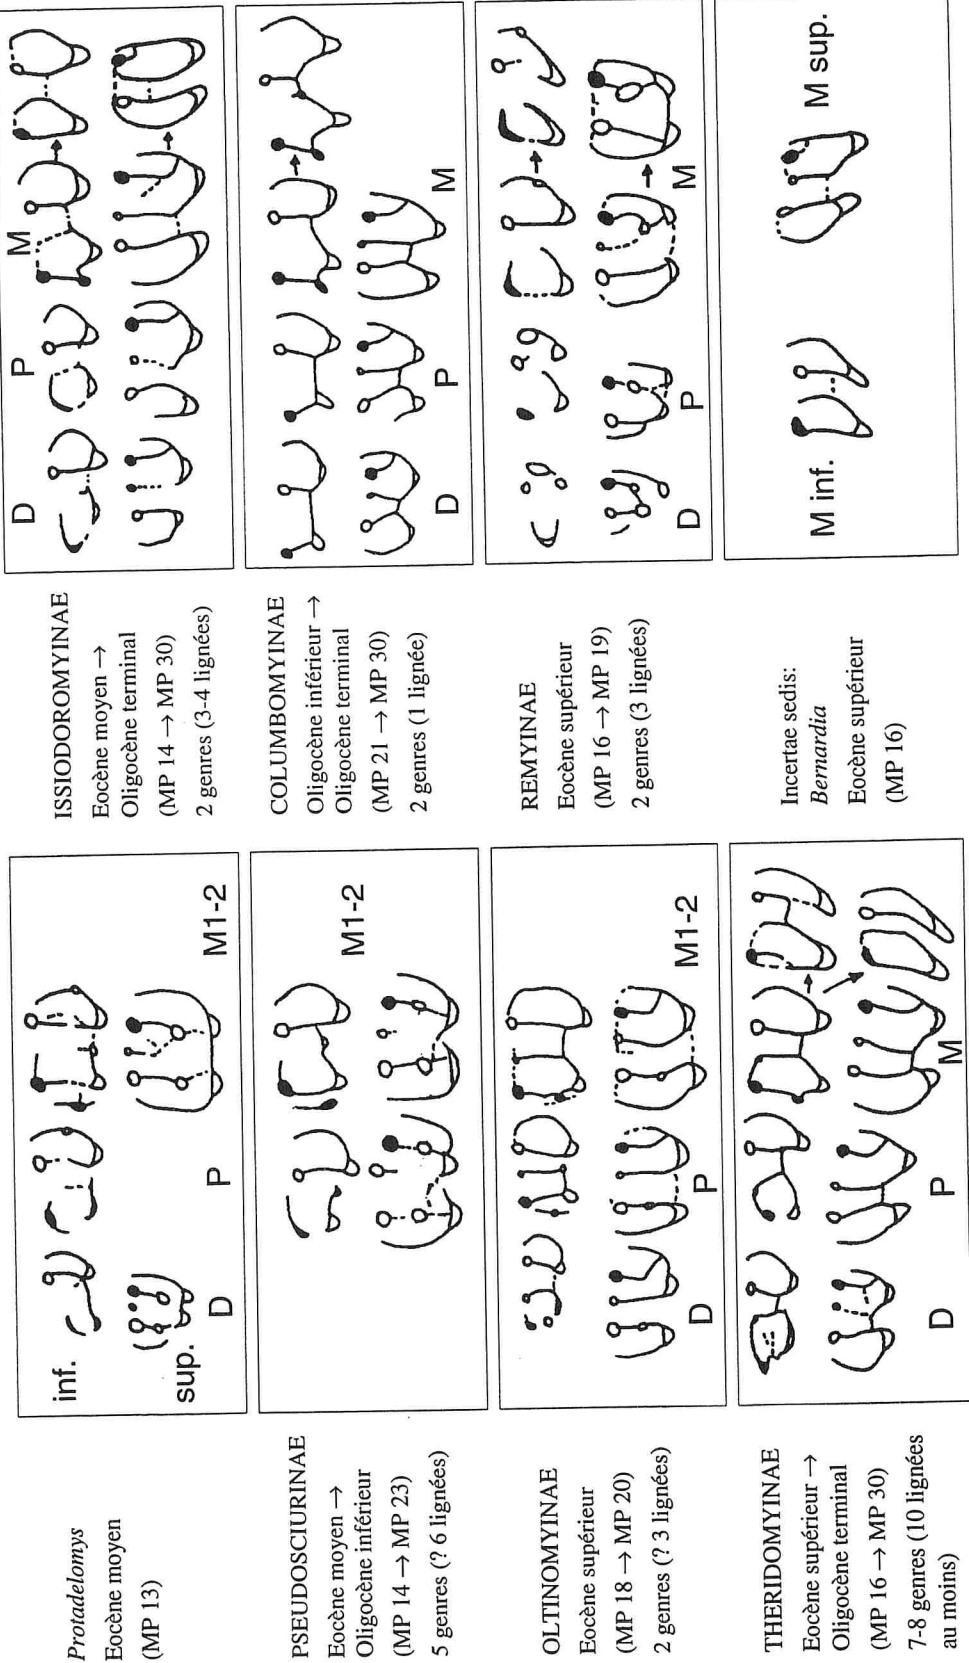 Protadelomys
Eocène moyen
(MP 13)
inf.
sup.
D
P
M1-2
PSEUDOSCIURINAE
Eocène moyen →
Oligocène inférieur
(MP 14 → MP 23)
5 genres (? 6 lignées)
M1-2
OLTINOMYINAE
Eocène supérieur
(MP 18 → MP 20)
2 genres (? 3 lignées)
D
P
M1-2
THERIDOMYINAE
Eocène supérieur →
Oligocène terminal
(MP 16 → MP 30)
7-8 genres (10 lignées
au moins)
D
P
M
ISSIODOROMYINAE
Eocène moyen →
Oligocène terminal
(MP 14 → MP 30)
2 genres (3-4 lignées)
D
P
M
COLUMBOMYINAE
Oligocène inférieur →
Oligocène terminal
(MP 21 → MP 30)
2 genres (1 lignée)
D
P
M
REMYINAE
Eocène supérieur
(MP 16 → MP 19)
2 genres (3 lignées)
D
P
M
Incertae sedis:
Bernardia
Eocène supérieur
(MP 16)
M inf.
M sup.